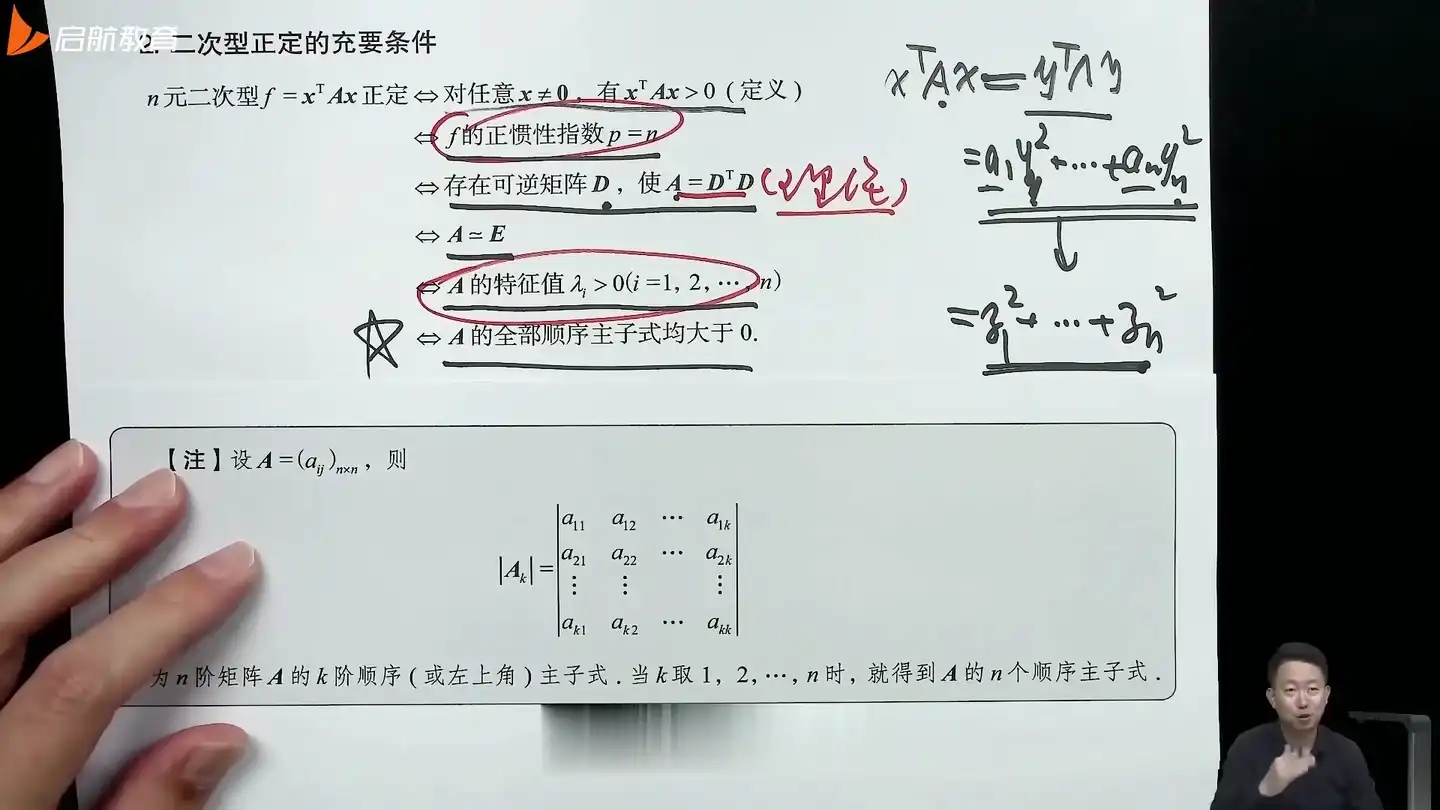 启航教育
2. 二次型正定的充要条件
n元二次型 f = xᵀAx 正定 ⇔ 对任意 x ≠ 0，有 xᵀAx > 0（定义）
⇔ f的正惯性指数 p = n
⇔ 存在可逆矩阵 D，使 A = DᵀD
⇔ A ≃ E
⇔ A 的特征值 λᵢ > 0(i =1, 2, ⋯, n)
⇔ A 的全部顺序主子式均大于 0.
xᵀAx = yᵀΛy
= a₁y₁² + ⋯ + aₙyₙ²
= z₁² + ⋯ + zₙ²
【注】设 A = (aᵢⱼ)ₙ×ₙ，则
|Aₖ| =
a₁₁ a₁₂ ⋯ a₁ₖ
a₂₁ a₂₂ ⋯ a₂ₖ
⋮ ⋮ ⋮
aₖ₁ aₖ₂ ⋯ aₖₖ
为 n 阶矩阵 A 的 k 阶顺序(或左上角)主子式. 当 k 取 1, 2, ⋯, n 时, 就得到 A 的 n 个顺序主子式.